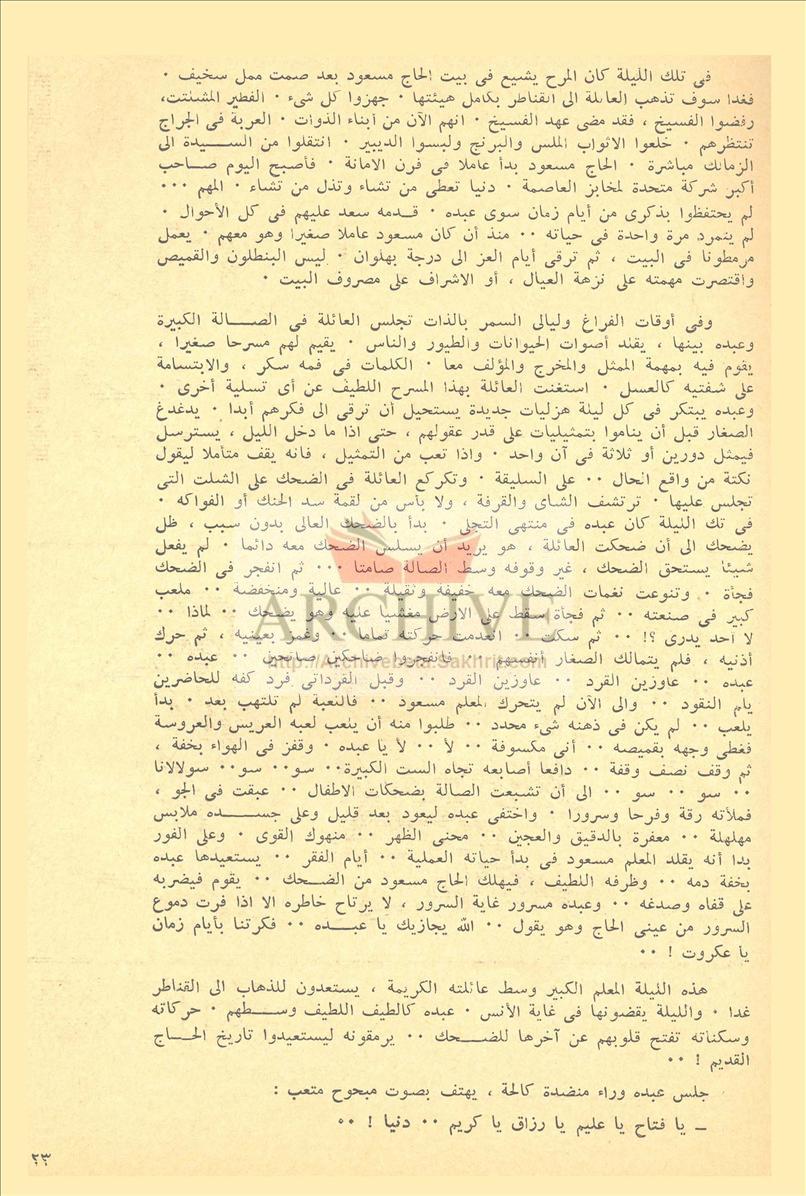 فى تلك الليلة كان المرح يشيع فى بيت الحاج مسعود بعد صمت ممل سخيف ٠
فغدا سوف تذهب العائلة الى القناطر بكامل هيئتها ٠ جهزوا كل شىء ٠ الفطير المشلتت،
رفضوا الفسيخ ، فقد مضى عهد الفسيخ ٠ انهم الآن من أبناء الذوات ٠ العربة فى الجراج
تنتظرهم ٠ خلعوا الاثواب الملس والبرنج ولبسوا الديبير ٠ انتقلوا من الســيدة الى
الزمالك مباشرة ٠ الحاج مسعود بدأ عاملا فى فرن الامانة ٠ فأصبح اليوم صاحب
أكبر شركة متحدة لمخابز العاصمة ٠ دنيا تعطى من تشاء وتذل من تشاء ٠ المهم ٠٠٠
لم يحتفظوا بذكرى من أيام زمان سوى عبده ٠ قـدمه سعد عليهم فى كل الأحوال ٠
لم يتمرد مرة واحدة فى حياته ٠٠ منذ أن كان مسعود عاملا صغيرا وهو معهم ٠ يعمل
مرمطونا فى البيت ، ثم ترقى أيام العز الى درجة بهلوان ٠ لبس البنطلون والقميص
واقتصرت مهمته على نزهة العيال ، أو الاشراف على مصروف البيت ٠
وفى أوقات الفراغ وليالى السمر بالذات تجلس العائلة فى الصــالة الكبيرة
وعبده بينها ، يقلد أصوات الحيوانات والطيور والناس ٠ يقيم لهم مسرحا صغيرا ،
يقوم فيه بمهمة الممثل والمخرج والمؤلف معا ٠ الكلمات فى فمه سكر ، والابتسامة
على شفتيه كالعسل ٠ استغنت العائلة بهذا المسرح اللطيف عن أى تسلية أخرى ٠
وعبده يبتكر فى كل ليلة هزليات جديدة يستحيل أن ترقى الى فكرهم أبدا ٠ يدغدغ
الصغار قبل أن يناموا بتمثيليات على قدر عقولهم ، حتى اذا ما دخل الليل ، يسترسل
فيمثل دورين أو ثلاثة فى آن واحد ٠ واذا تعب من التمثيل ، فانه يقف متأملا ليقول
نكتة من واقع الحال ٠٠ على السليقة ٠ وتكركع العائلة فى الضحك على الشلت التى
تجلس عليها ٠ ترتشف الشاى والقرفة ، ولا بأس من لقمة سد الحنك أو الفواكه ٠
فى تلك الليلة كان عبده فى منتهى التجلى ٠ بدأ بالضحك العالى بدون سبب ، ظل
يضحك الى أن ضحكت العائلة ، هو يريد أن يسلس الضحك معه دائما ٠ لم يفعل
شيئا يستحق الضحك ، غير وقوفه وسط الصالة صامتا ٠٠٠ ثم انفجر فى الضحك
فجأة ٠ وتنوعت نغمات الضحك معه خفيفة وثقيلة ٠٠ عالية ومنخفضة ٠٠ ملعب
كبير فى صنعته ٠٠ ثم فجأة سقط على الارض مغشيا عليه وهو يضحك ٠٠ لماذا ٠٠
لا أحد يدرى ؟! ٠٠ ثم سكت ٠٠ انعدمت حركته تماما ٠٠ وغمز بعينيه ، ثم حرك
أذنيه ، فلم يتمالك الصغار أنفسهم ٠٠ فانفجروا ضاحكين صائحين ٠٠ عبده ٠٠
عبده ٠٠ عاوزين القرد ٠٠ عاوزين القرد ٠٠ وقبل القرداتى فرد كفه للحاضرين
يلم النقود ٠٠ والى الآن لم يتحرك المعلم مسعود ٠٠ فاللعبة لم تلتهب بعد ٠ بدأ
يلعب ٠٠ لم يكن فى ذهنه شىء محدد ٠٠ طلبوا منه أن يلعب لعبه العريس والعروسة
فغطى وجهه بقميصه ٠٠ أنى مكسوفة ٠٠ لأ ٠٠ لأ يا عبده ٠ وقفز فى الهواء بخفة ،
ثم وقف نصف وقفة ٠٠ دافعا أصابعه تجاه الست الكبيرة٠٠ سو٠٠ سو٠٠ سولالانا
٠٠ سو ٠٠ سو ٠٠ الى أن تشبعت الصالة بضحكات الاطفال ٠٠ عبقت فى الجو ،
فملأته رقة وفرحا وسرورا ٠ واختفى عبده ليعود بعد قليل وعلى جســـده ملابس
مهلهلة ٠٠ معفرة بالدقيق والعجين ٠٠ محنى الظهر ٠٠ منهوك القوى ٠ وعلى الفور
بدا أنه يقلد المعلم مسعود فى بدأ حياته العملية ٠٠ أيام الفقر ٠٠ يستعيدها عبده
بخفة دمه ٠٠ وظرفه اللطيف ، فيهلك الحاج مسعود من الضـحك ٠٠ يقوم فيضربه
على قفاه وصدغه ٠٠ وعبده مسرور غاية السرور ، لا يرتاح خاطره الا اذا فرت دموع
السرور من عينى الحاج وهو يقول ٠٠ الله يجازيك يا عبــده ٠٠ فكرتنا بأيام زمان
يا عكروت ! ٠٠
هذه الليلة المعلم الكبير وسط عائلته الكريمة ، يستعدون للذهاب الى القناطر
غدا ٠ والليلة يقضونها فى غاية الأنس ٠ عبده كالطيف اللطيف وســطهم ٠ حركاته
وسكناته تفتح قلوبهم عن آخرها للضــحك ٠٠ يرمقونه ليستعيدوا تاريخ الحــاج
القديم ! ٠٠
جلس عبده وراء منضدة كالحة ، يهتف بصوت مبحوح متعب :
ــ يا فتاح يا عليم يا رزاق يا كريم ٠٠ دنيا ! ٠٠
٢٣
ARCHIVE
http://Archivebeta.Sakhrit.com